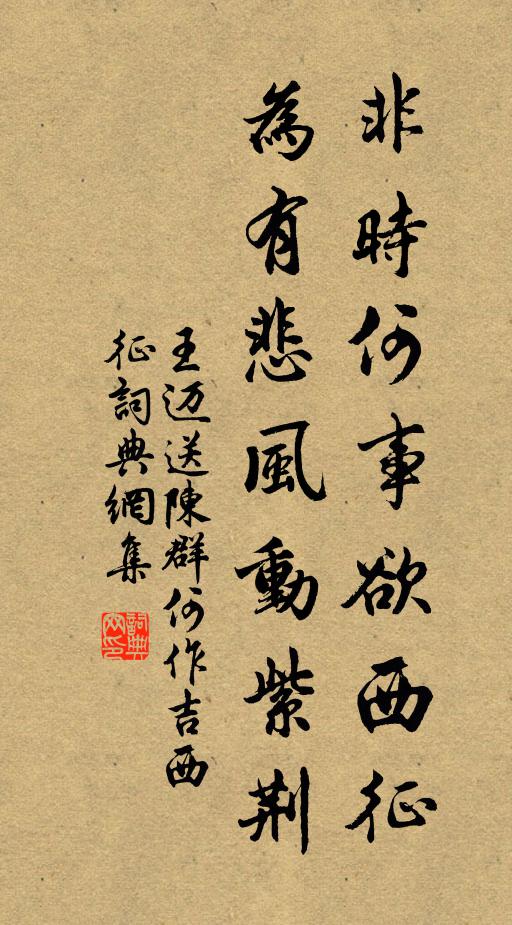 非時何事欲西征
為有悲風動紫荆
王迈送陳群何作吉西
征詞典網集
詞典
网印